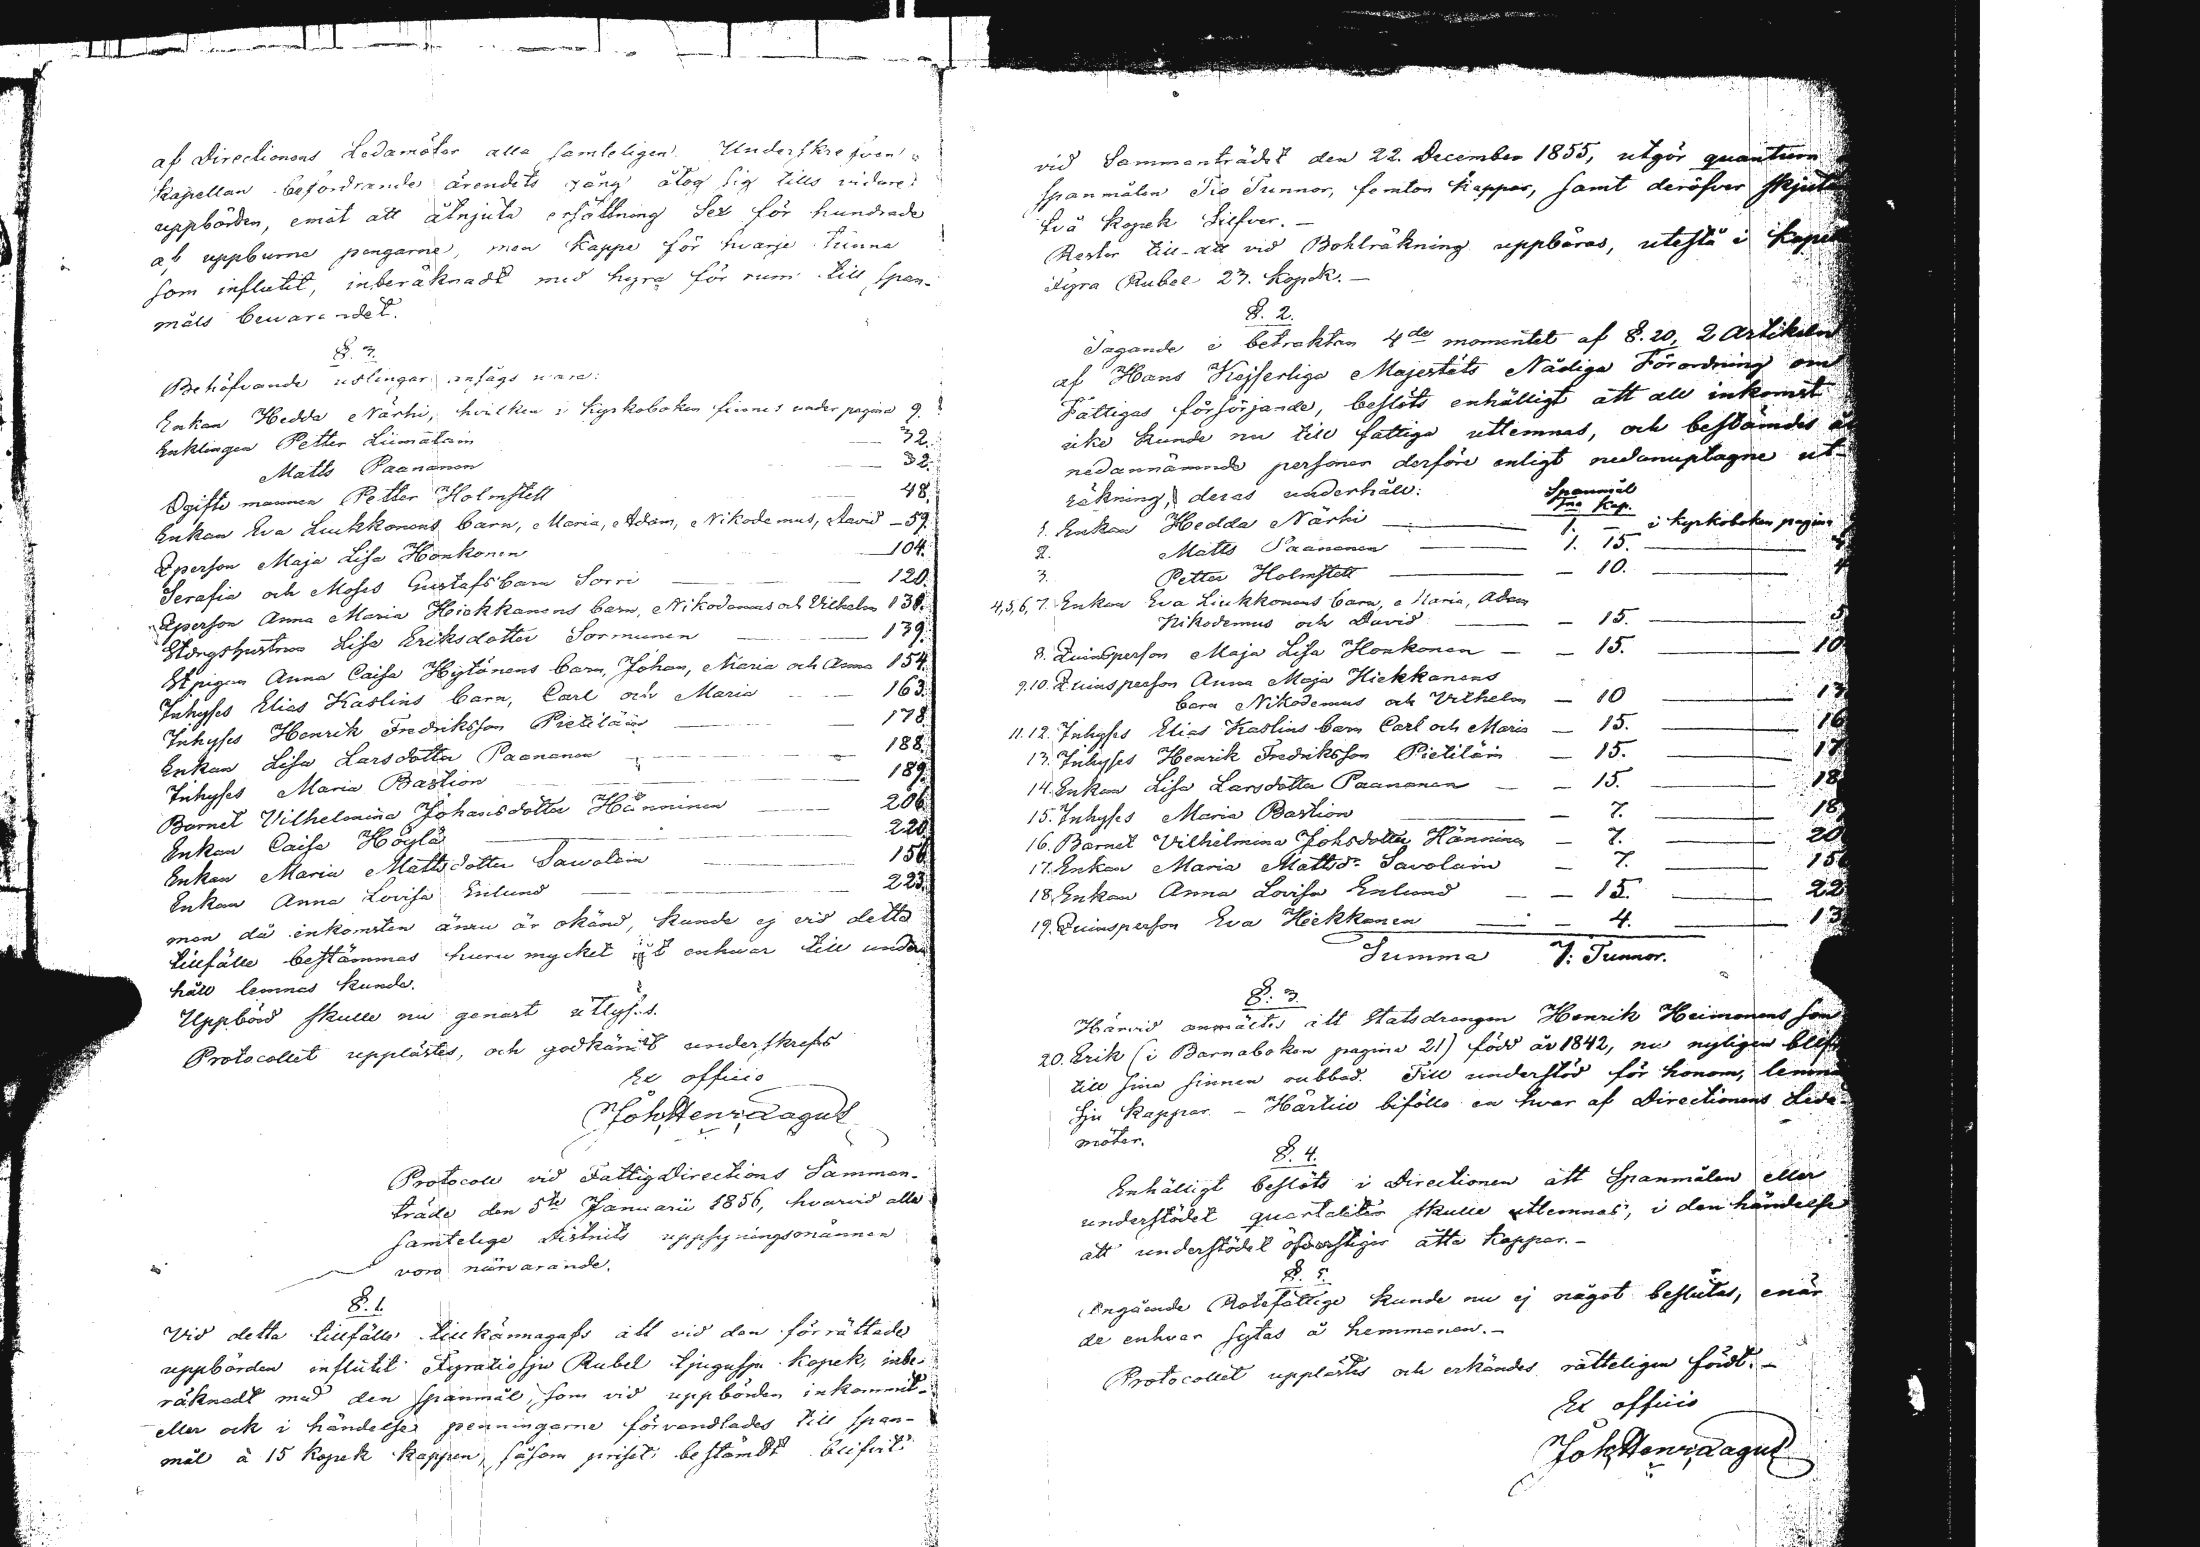 af Directionens Ledamöter alla samteligen. Underskrefven
kapellan befordrande ärendets gång åtog sig tills vidare
uppbörden, emot att åtnjuta ersättning Sex för hundrade
af uppburna pengarne, men kappe för hvarje tunna
som influtit, inberäknadt med hyra för rum till Span-
måls bevarandet.
§. 3.
Behöfvande uslingar ansågs vara:
Enkan Hedda Närhi, hvilken i Kyrkoboken finnes under pagina 9.
Enklingen Petter Liimatain — 32.
Matts Paananen — 32.
Ogifte mannen Petter Holmstett — 48.
Enkan Eva Liukkonens barn, Maria, Adam, Nikodemus, David — 59.
Qperson Maja Lisa Honkonen — 104.
Serafia och Moses Gustafsbarn Sorri — 120.
Qperson Anna Maria Hiekkanens barn, Nikodemus och Vilhelm 130.
Lisa Eriksdotter Sormunen — 139.
Stpigan Anna Caisa Hytönens barn, Johan, Maria och Anna 154.
Inhyses Elias Kaslins barn, Carl och Maria — 163.
Inhyses Henrik Fredriksson Pietiläin — 178.
Enkan Lisa Larsdotter Paananen — 188.
Inhyses Maria Bastion — 189.
Barnet Vilhelmina Johansdotter Hänninen — 206.
Enkan Caisa Höylä — 220.
Enkan Maria Mattsdotter Sawolain — 156.
Enkan Anna Lovisa Enlund — 223.
men då inkomsten ännu är okänd, kunde ej vid detta
tillfälle bestämmas huru mycket åt enhvar till under
håll lemnas kunde.
Uppbörd skulle nu genast utlyses.
Protocollet upplästes, och godkändt underskrefs
Ex officio
Joh Henr Lagus
Protocoll vid FattigDirections Samman-
träde den 5te Januarii 1856, hvarvid alla
samtelige Districts uppsyningsmännen
voro närvarande.
§. 1.
Vid detta tillfälle tillkännagafs att vid den förrättade
uppbörden influtit Fyratiosju Rubel tjugusju kopek, inbe-
räknadt med den Spanmål, som vid uppbörden inkommit
eller ock i händelse penningarne förvandlades till Span-
mål à 15 kopek kappen, såsom priset bestämdt blifvit
vid Sammanträdet den 22. December 1855, utgör quantum
Spanmålen Tio Tunnor, femton kappar, samt deröfver skjuta
två kopek Silfver. —
Rester till att vid Bohlräkning uppbäras, utestå i kapel
Fyra Rubel 23. kopek. —
§. 2.
Tagande i betraktan 4de momentet af §. 20, 2 Artikelen
af Hans Kejserliga Majestäts Nådiga Förordning om
Fattigas försörjande, beslöts enhälligt att all inkomst
icke kunde nu till fattiga utlemnas, och bestämdes åt
nedannämnde personer derföre enligt nedanuptagne ut-
räkning, deras underhåll: Spanmål
Tna Kap.
1. Enkan Hedda Närhi — 1. — i kyrkoboken pagina
2. Matts Paananen — 1. 15.
3. Petter Holmstett — 10. — 4
4,5,6,7. Enkan Eva Liukkonens barn, Maria, Adam
Nikodemus och David — 15. — 5
8. Quinsperson Maja Lisa Honkonen — 15. — 10
9.10. Quinsperson Anna Maja Hiekkanens
barn Nikodemus och Vilhelm — 10 — 13
11.12. Inhyses Elias Kaslins barn Carl och Maria — 15. — 16
13. Inhyses Henrik Fredriksson Pietiläin — 15. — 17
14. Enkan Lisa Larsdotter Paananen — 15. — 18
15. Inhyses Maria Bastion — 7. — 18
16. Barnet Vilhelmina Johsdotter Hänninen — 7. — 20
17. Enkan Maria Mattsdr Savolain — 7. — 156
18. Enkan Anna Lovisa Enlund — 15. — 22
19. Quinsperson Eva Hiekkanen — 4. — 13
Summa 7. Tunnor.
§. 3.
Härvid anmältes att Statsdrengen Henrik Heimonens son
20. Erik (i Barnaboken pagina 21) född år 1842, nu nyligen blifv
till sina sinnen rubbad. Till understöd för honom, lemna
sju kappar. — Härtill biföllo en hvar af Directionens Leda-
möter.
§. 4.
Enhälligt beslöts i Directionen att Spanmålen eller
understödet quartaliter skulle utlemnas, i den händelse
att understödet öfverstiger åtta kappar. —
§. 5.
Angående Rotefattige kunde nu ej något beslutas, enär
de enhvar sytas å hemmanen. —
Protocollet upplästes och erkändes rätteligen fördt. —
Ex officio
Joh Henr Lagus